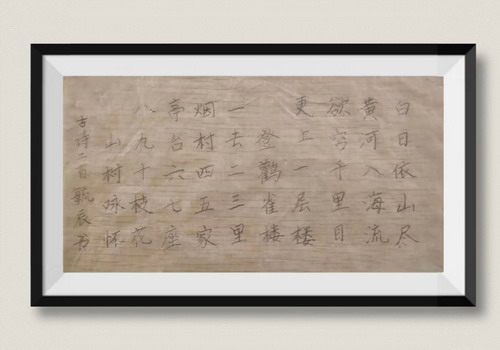 白日依山尽
黄河入海流
欲穷千里目
更上一层楼
登鹳雀楼
一去二三里
烟村四五家
亭台六七座
八九十枝花
山村咏怀
古诗二首 辰书